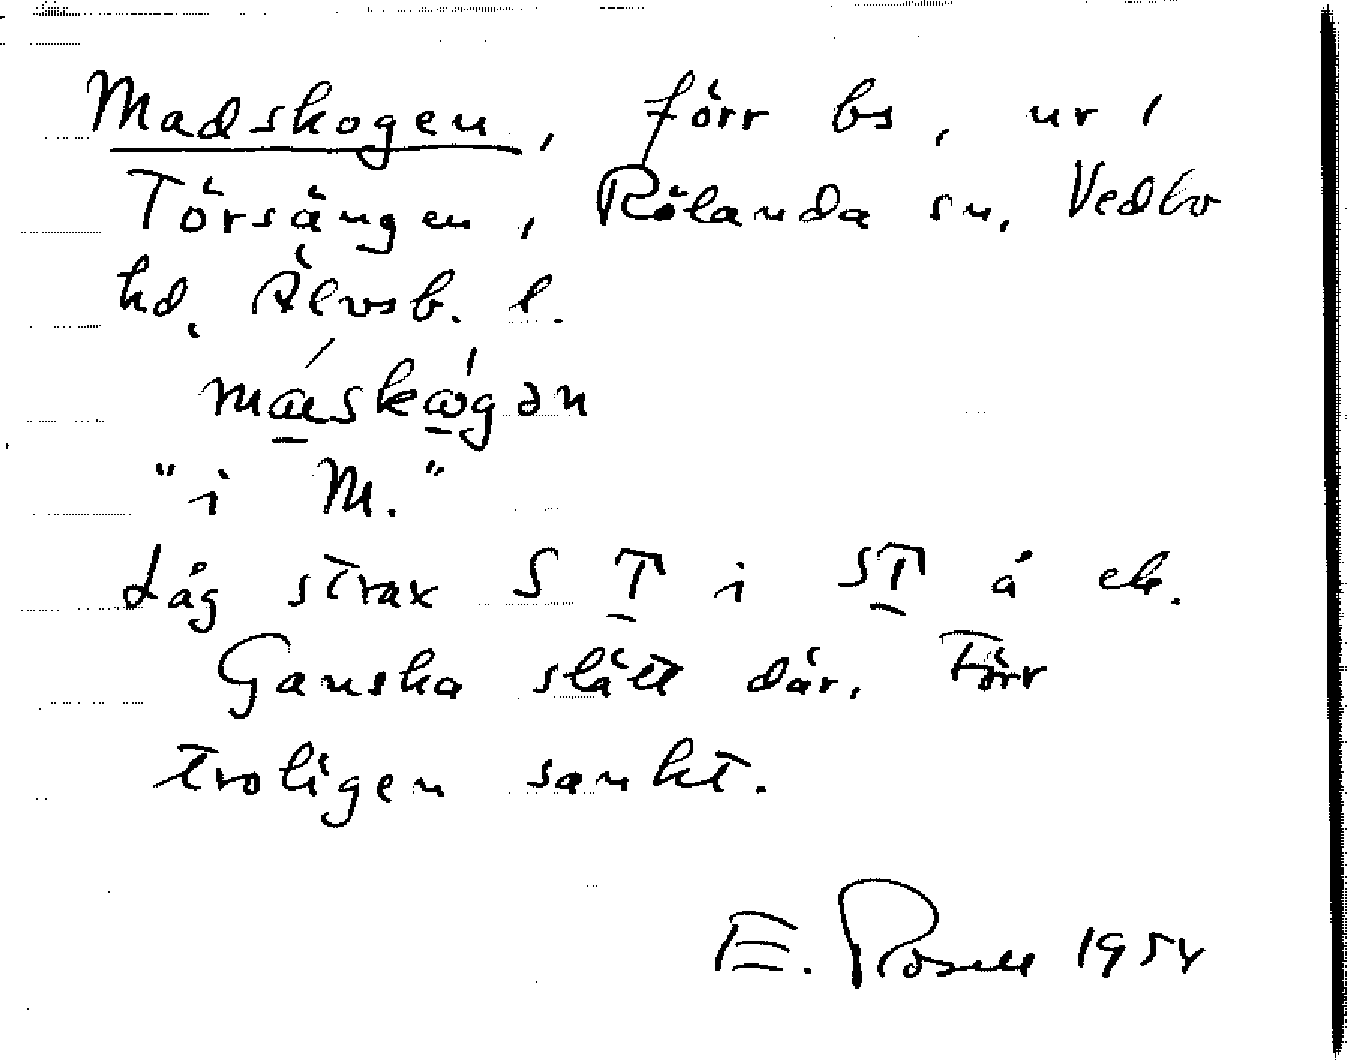 Madskogen, förr bs, nr 1
Törsängen, Rölanda sn, Vedbo
hd, Älvsb. l.
"i M."
Låg strax S T i ST å ek.
Ganska slätt där. Förr
troligen sankt.
E. Rosell 1954